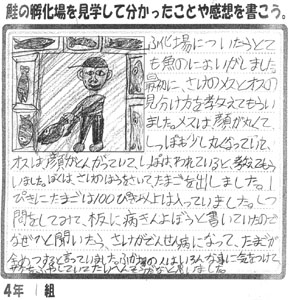 鮭の孵化場を見学して分かったことや感想を書こう。
ふ化場についたらとて
も魚のにおいがしました。
最初に、さけのメスとオスの
見分け方を教えてもらい
ました。メスは顔が丸くて、
しっぽも少し丸くなっていて、
オスは顔がとんがっていて、しっぽもわれていると教えてもらい
ました。ぼくは、さけのほうをさいて、たまごを出しました。1
ぴきにたまごは100ぴき以上は入っていました。しつ
問をしてみて、板に病きんよぼうと書いていたので
なぜかと聞いたら、さけがでんせん病になって、たまごが
と言っていました。ふか場の人はいろんな事に気をつけて
と思いました。
4年 1組